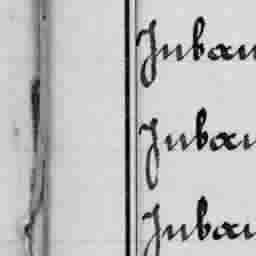 Juban
Juban
Juban